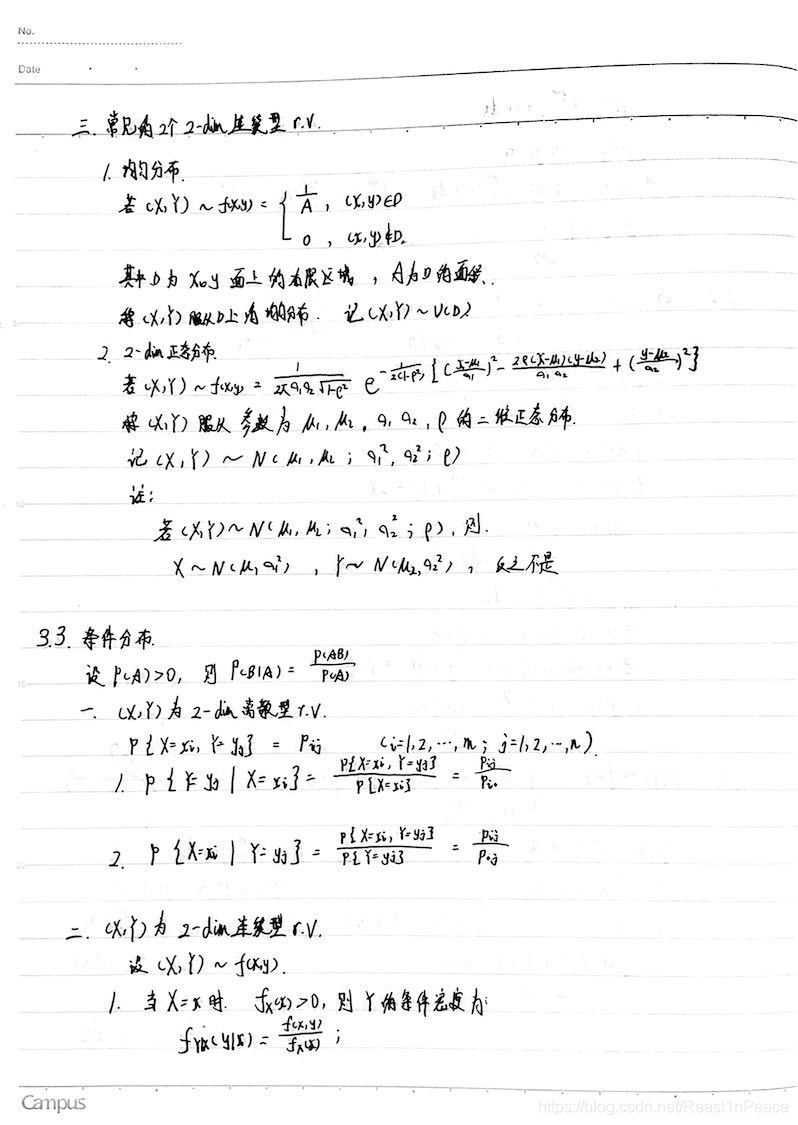 No.
Date
三. 常见的2个 2-dim 连续型 r.v.
1. 均匀分布.
若 (X,Y) ~ f(x,y) = { 1/A , (x,y)∈D
0 , (x,y)∉D.
其中D为 xoy 面上的有限区域 , A为D的面积.
称 (X,Y) 服从D上的均匀分布. 记 (X,Y) ~ U(D)
2. 2-dim 正态分布.
若 (X,Y) ~ f(x,y) = 1/(2πσ₁σ₂√(1-ρ²)) e^{-1/(2(1-ρ²)) [((x-μ₁)/σ₁)² - 2ρ(x-μ₁)(y-μ₂)/(σ₁σ₂) + ((y-μ₂)/σ₂)²]}
称 (X,Y) 服从 参数为 μ₁, μ₂, σ₁, σ₂, ρ 的二维正态分布.
记 (X,Y) ~ N(μ₁, μ₂ ; σ₁², σ₂² ; ρ)
注:
若 (X,Y) ~ N(μ₁, μ₂ ; σ₁², σ₂² ; ρ), 则.
X ~ N(μ₁, σ₁²) , Y ~ N(μ₂, σ₂²) , 反之不是
3.3. 条件分布.
设 P(A)>0, 则 P(B|A) = P(AB)/P(A)
一. (X,Y) 为 2-dim 离散型 r.v.
P{X=xi, Y=yj} = Pij (i=1,2,…,m ; j=1,2,…,n)
1. P{Y=yj | X=xi} = P{X=xi, Y=yj}/P{X=xi} = Pij/Pi·
2. P{X=xi | Y=yj} = P{X=xi, Y=yj}/P{Y=yj} = Pij/P·j
二. (X,Y) 为 2-dim 连续型 r.v.
设 (X,Y) ~ f(x,y).
1. 当 X=x 时. fX(x)>0, 则 Y 的条件密度为:
fY|X(y|x) = f(x,y)/fX(x) ;
Campus
https://blog.csdn.net/Reast1nPeace